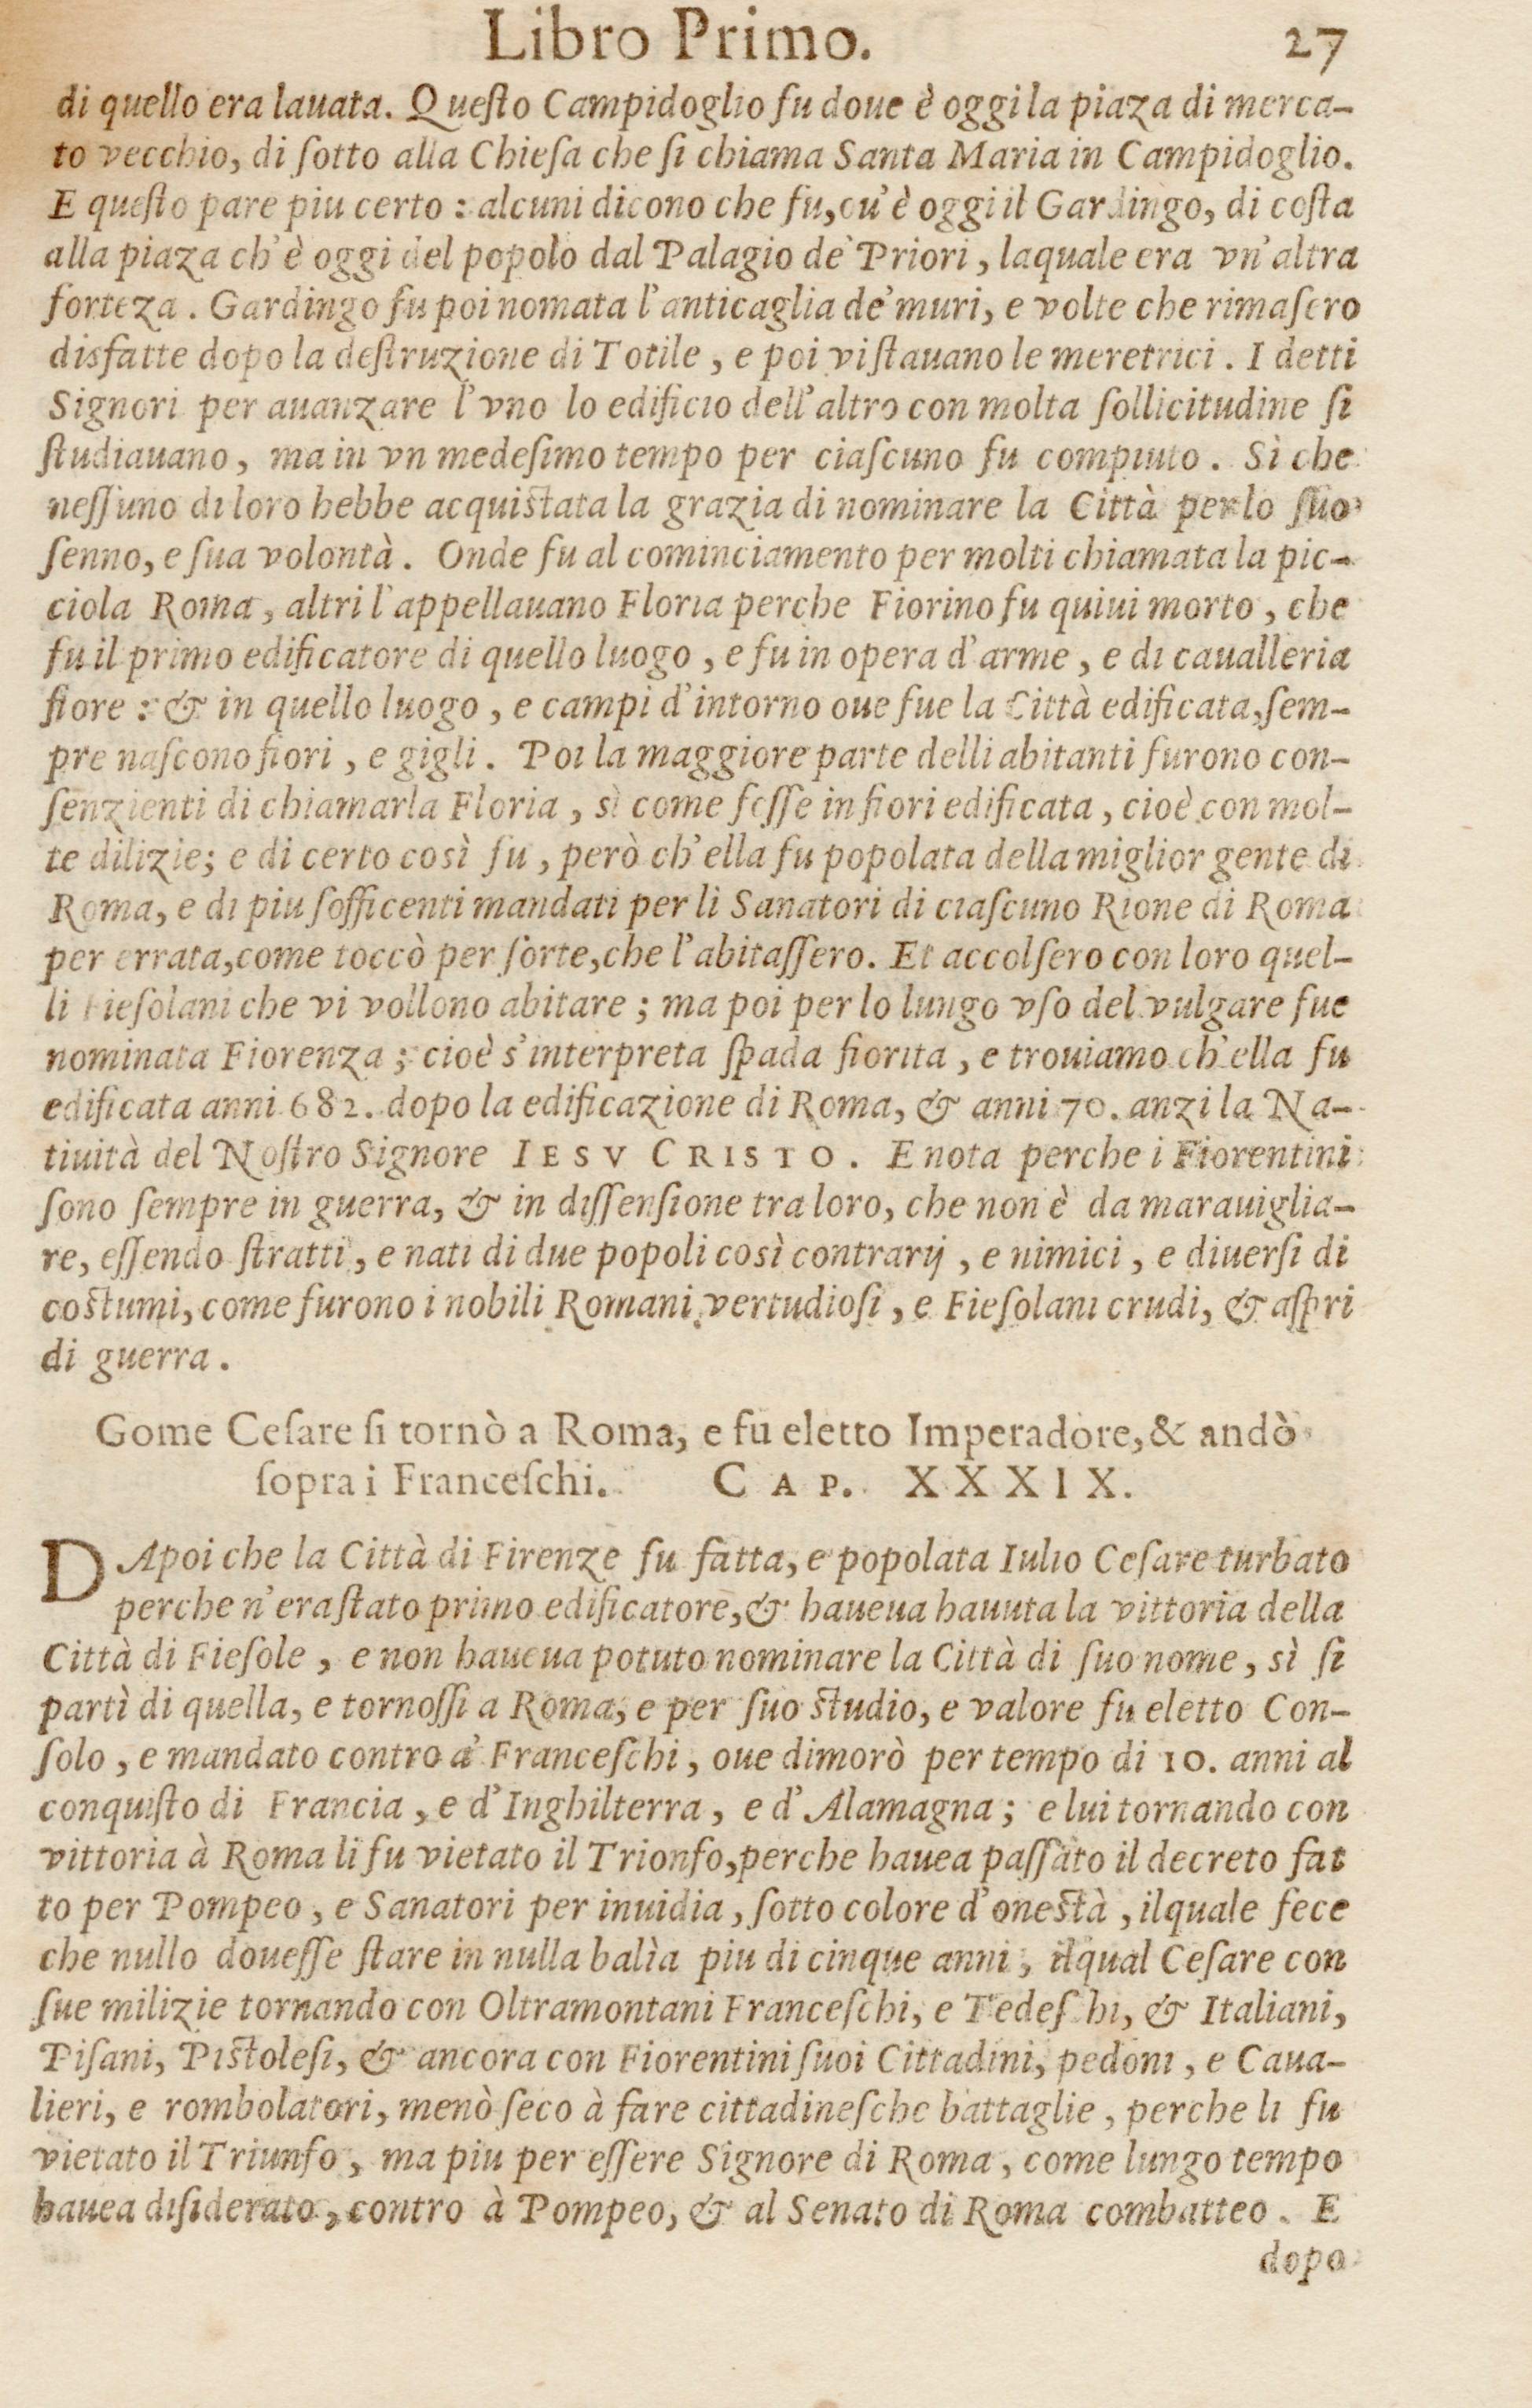 Libro Primo. 27
di quello era lauata. Queſto Campidoglio fu doue è oggi la piaza di merca-
to vecchio, di ſotto alla Chieſa che ſi chiama Santa Maria in Campidoglio.
E queſto pare piu certo : alcuni dicono che fu, ou'è oggi il Gardingo, di coſta
alla piaza ch'è oggi del popolo dal Palagio de' Priori, laquale era vn'altra
forteza. Gardingo fu poi nomata l'anticaglia de' muri, e volte che rimaſero
disfatte dopo la deſtruzione di Totile, e poi vi ſtauano le meretrici. I detti
Signori per auanzare l'vno lo edificio dell'altro con molta ſollicitudine ſi
ſtudiauano, ma in vn medeſimo tempo per ciaſcuno fu compiuto. Sì che
neſſuno di loro hebbe acquiſtata la grazia di nominare la Città per lo ſuo
ſenno, e ſua volontà. Onde fu al cominciamento per molti chiamata la pic-
ciola Roma, altri l'appellauano Floria perche Fiorino fu quiui morto, che
fu il primo edificatore di quello luogo, e fu in opera d'arme, e di caualleria
fiore : & in quello luogo, e campi d'intorno oue fue la Città edificata, ſem-
pre naſcono fiori, e gigli. Poi la maggiore parte delli abitanti furono con-
ſenzienti di chiamarla Floria, sì come foſſe in fiori edificata, cioè con mol-
te dilizie; e di certo così fu, però ch'ella fu popolata della miglior gente di
Roma, e di piu ſofficenti mandati per li Sanatori di ciaſcuno Rione di Roma
per errata, come toccò per ſorte, che l'abitaſſero. Et accolſero con loro quel-
li Fieſolani che vi vollono abitare; ma poi per lo lungo vſo del vulgare fue
nominata Fiorenza; cioè s'interpreta ſpada fiorita, e trouiamo ch'ella fu
edificata anni 682. dopo la edificazione di Roma, & anni 70. anzi la Na-
tiuità del Noſtro Signore IESV CRISTO. E nota perche i Fiorentini
ſono ſempre in guerra, & in diſſenſione tra loro, che non è da marauiglia-
re, eſſendo ſtratti, e nati di due popoli così contrarij, e nimici, e diuerſi di
coſtumi, come furono i nobili Romani vertudioſi, e Fieſolani crudi, & aſpri
di guerra.
Gome Ceſare ſi tornò a Roma, e fu eletto Imperadore, & andò
ſopra i Franceſchi. CAP. XXXIX.
DApoi che la Città di Firenze fu fatta, e popolata Iulio Ceſare turbato
perche n'era ſtato primo edificatore, & haueua hauuta la vittoria della
Città di Fieſole, e non haueua potuto nominare la Città di ſuo nome, sì ſi
partì di quella, e tornoſſi a Roma, e per ſuo ſtudio, e valore fu eletto Con-
ſolo, e mandato contro a' Franceſchi, oue dimorò per tempo di 10. anni al
conquiſto di Francia, e d'Inghilterra, e d'Alamagna; e lui tornando con
vittoria à Roma li fu vietato il Trionfo, perche hauea paſſato il decreto fat
to per Pompeo, e Sanatori per inuidia, ſotto colore d'oneſtà, ilquale fece
che nullo doueſſe ſtare in nulla balìa piu di cinque anni, ilqual Ceſare con
ſue milizie tornando con Oltramontani Franceſchi, e Tedeſchi, & Italiani,
Piſani, Piſtoleſi, & ancora con Fiorentini ſuoi Cittadini, pedoni, e Caua-
lieri, e rombolatori, menò ſeco à fare cittadineſche battaglie, perche li fu
vietato il Triunfo, ma piu per eſſere Signore di Roma, come lungo tempo
hauea diſiderato, contro à Pompeo, & al Senato di Roma combatteo. E
dopo